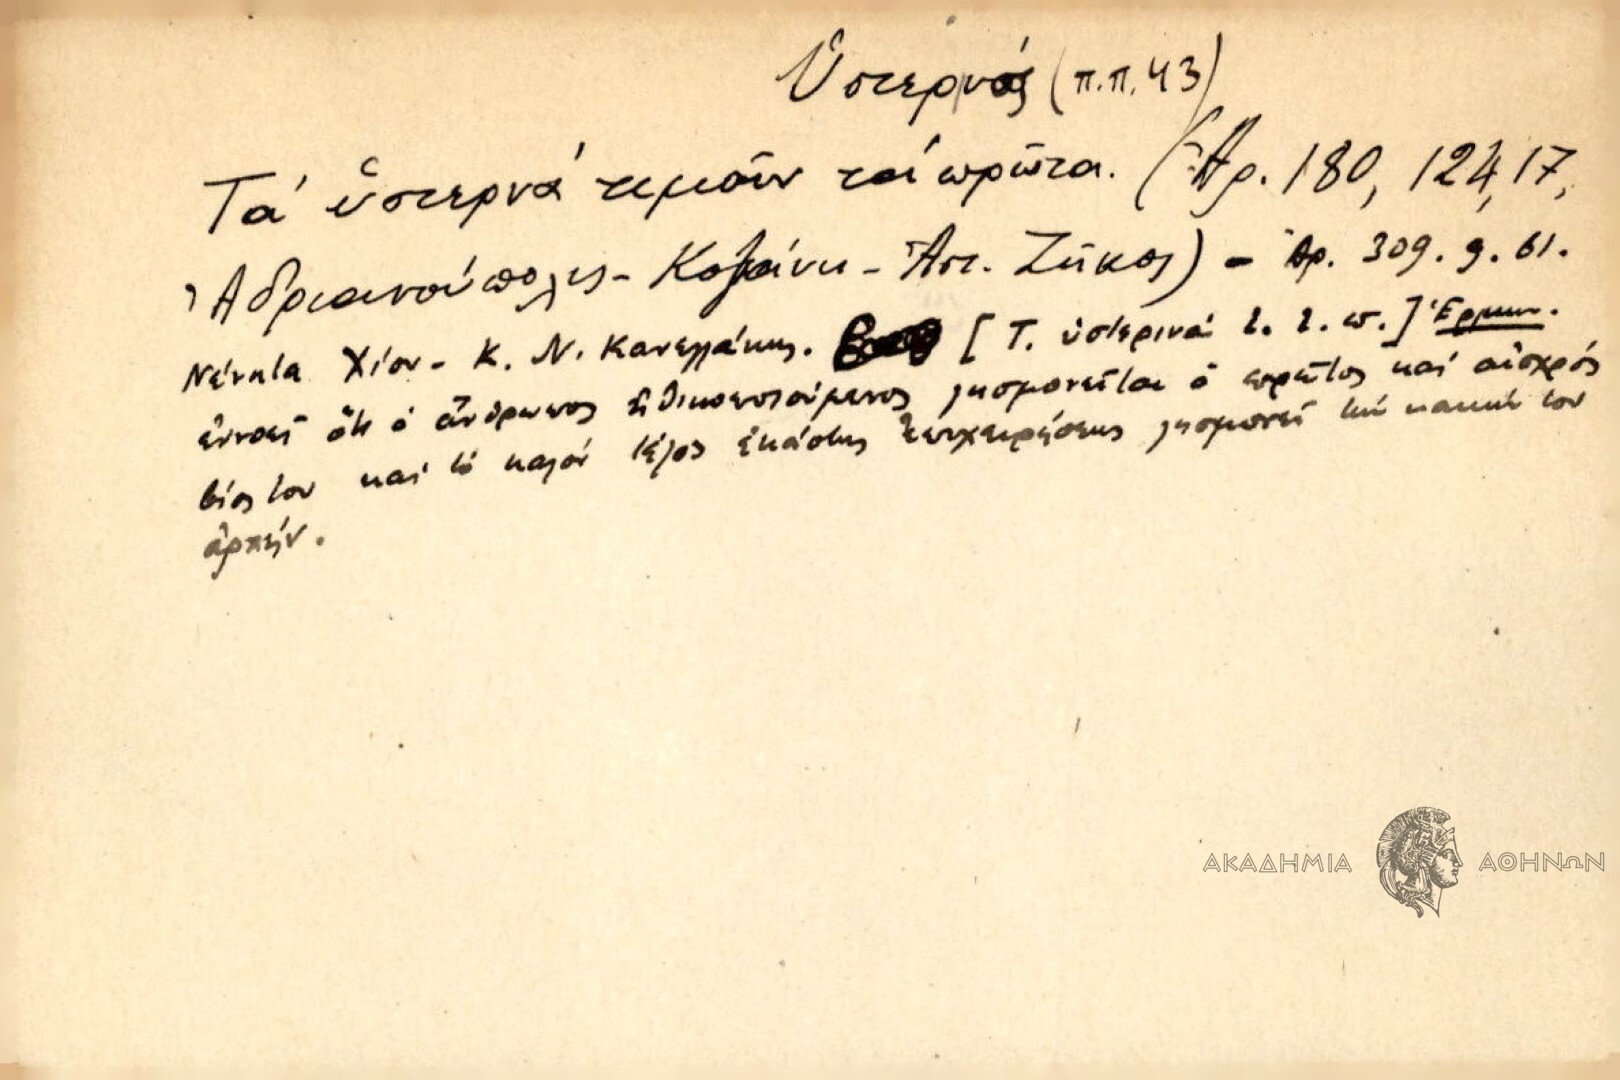 Ὑστερνός (π.π. 43)
Τά ὑστερνά τιμοῦν τά πρῶτα. (Ἀρ. 180, 124, 17,
Ἀδριανούπολις - Κοζάνη - Ἀστ. Ζῆκος) - Ἀρ. 309. 9. 61.
Νένητα Χίου - Κ. Ν. Κανελλάκης. [Τ. ὑστερινά τ. τ. π.] Ἑρμην.
ἐννοεῖ ὅτι ὁ ἄνθρωπος ἠθικοποιούμενος λησμονεῖται ὁ πρῶτος καί αἰσχρός
βίος του καί τό καλόν τέλος ἑκάστης ἐπιχειρήσεως λησμονεῖ τήν κακήν του
ἀρχήν.
ΑΚΑΔΗΜΙΑ ΑΘΗΝΩΝ